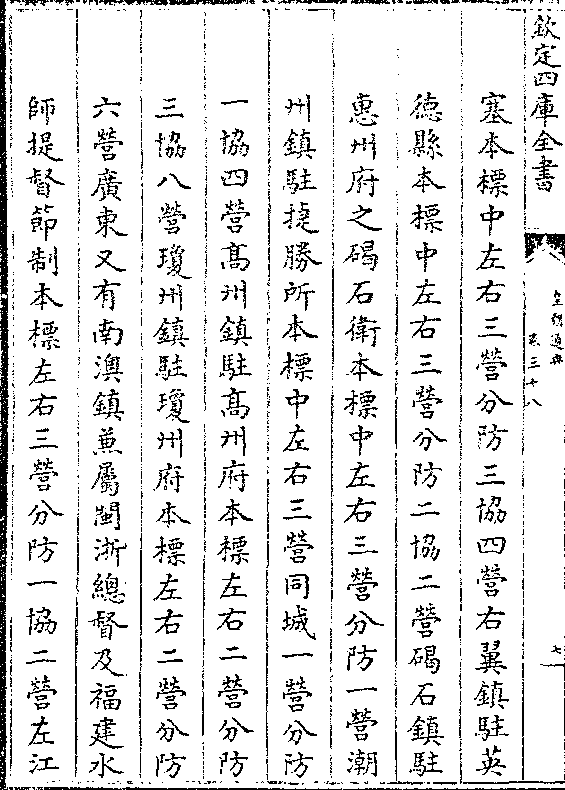 欽定四庫全書
皇朝通典
卷三十八
七
塞本標中左右三營分防三協四營右翼鎮駐英
德縣本標中左右三營分防二協二營碣石鎮駐
惠州府之碣石衛本標中左右三營分防一營潮
州鎮駐捷勝所本標中左右三營同城一營分防
一協四營髙州鎮駐髙州府本標左右二營分防
三協八營瓊州鎮駐瓊州府本標左右二營分防
六營廣東又有南澳鎮兼屬閩浙總督及福建水
師提督節制本標左右三營分防一協二營左江